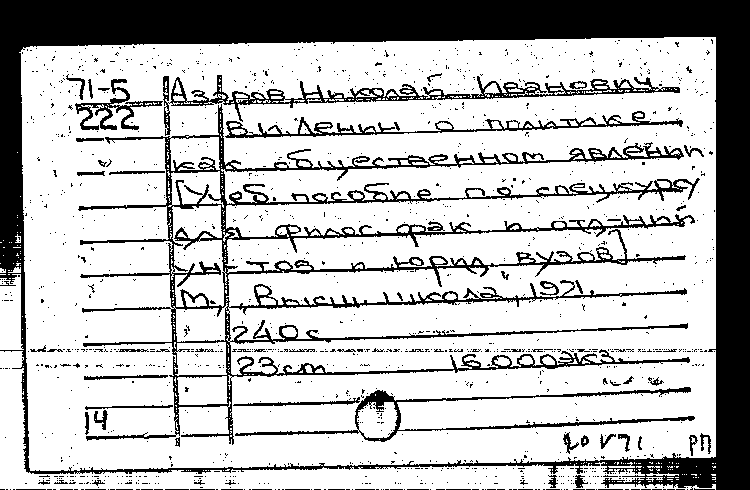 71-5 Азаров, Николай Иванович.
222 В.И. Ленин о политике
как общественном явлении.
[Учеб. пособие по спецкурсу
для филос. фак. и отд-ний
ун-тов и юрид. вузов].
М., „Высш. школа", 1971.
240 с.
23 cm 16.000 экз.
14
20 V 71 РП